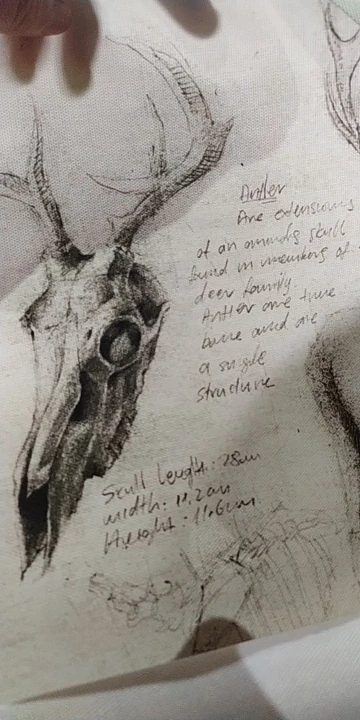 Antler
Are extensions
of an animals skull
found in members of
deer family.
Antler are true
bone and are
a single
structure
Skull length: 28cm
width: 11.2cm
Height: 11.6cm